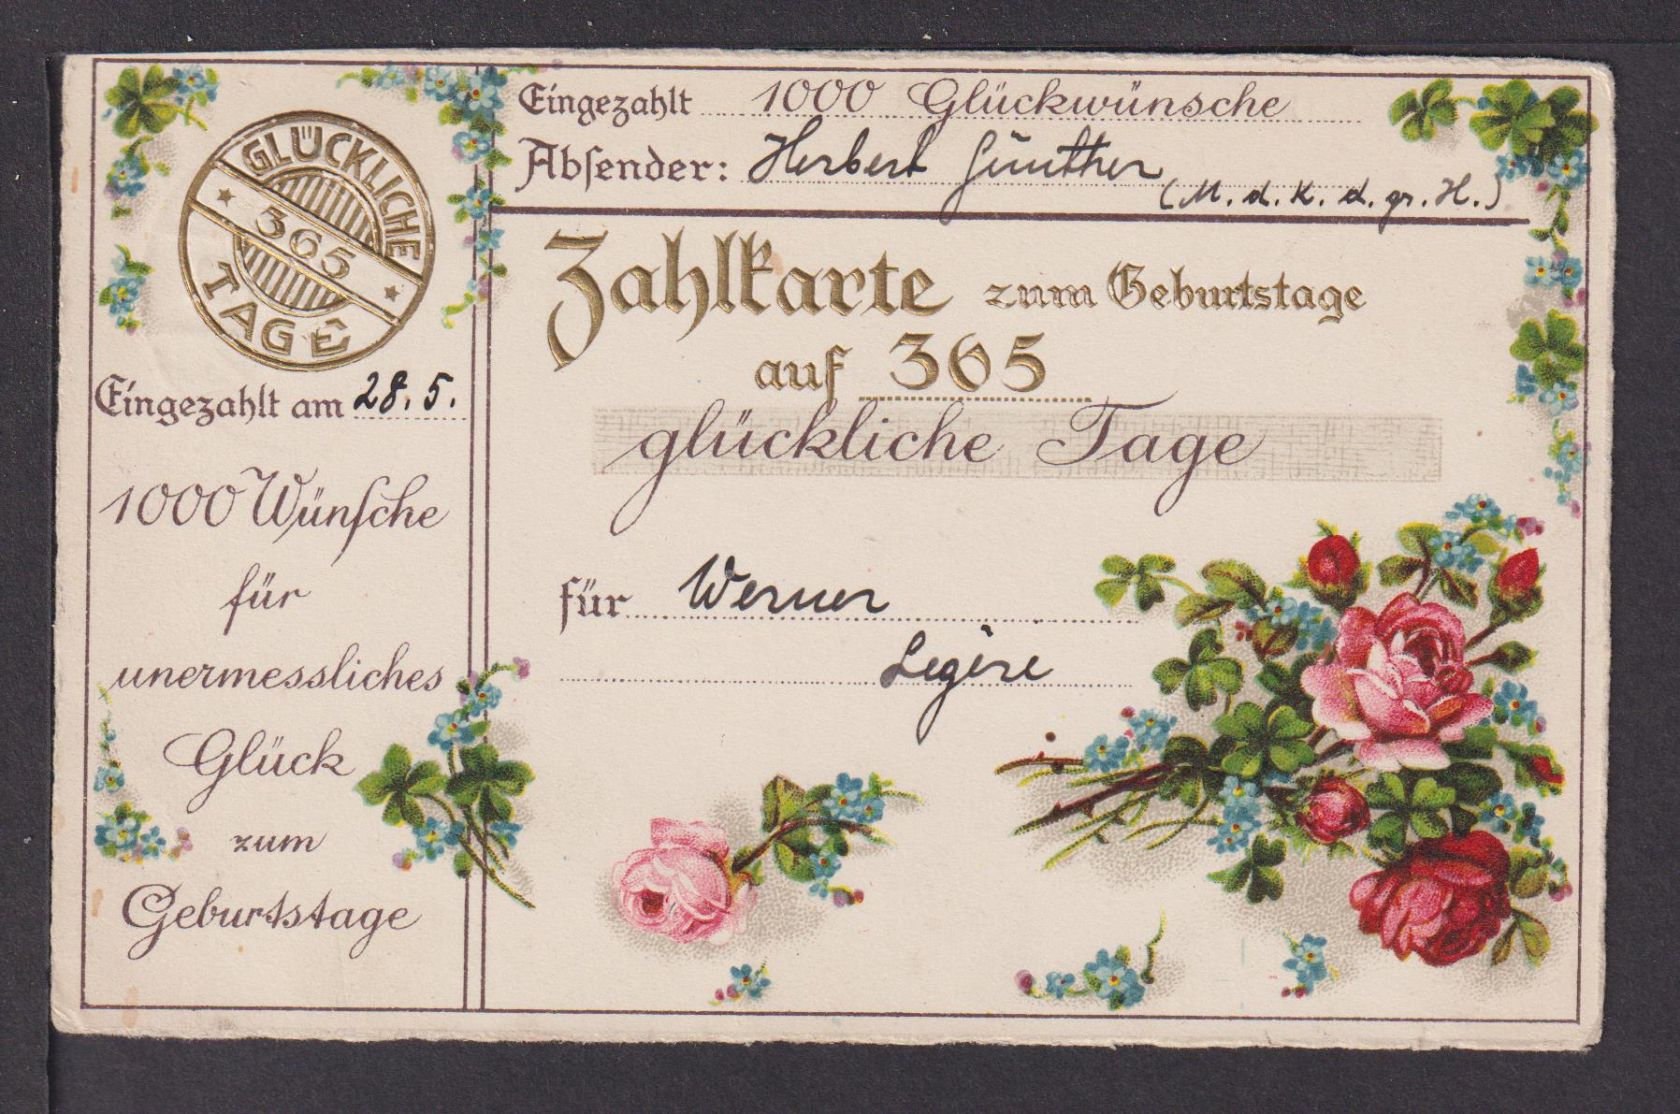 GLÜCKLICHE
365
TAGE
Eingezahlt am 28. 5.
1000 Wünſche
für
unermessliches
Glück
zum
Geburtstage
Eingezahlt 1000 Glückwünsche
Abſender: Herbert Günther
(M. d. K. d. gr. H.)
Zahlkarte zum Geburtstage
auf 365
glückliche Tage
für Werner
Legère